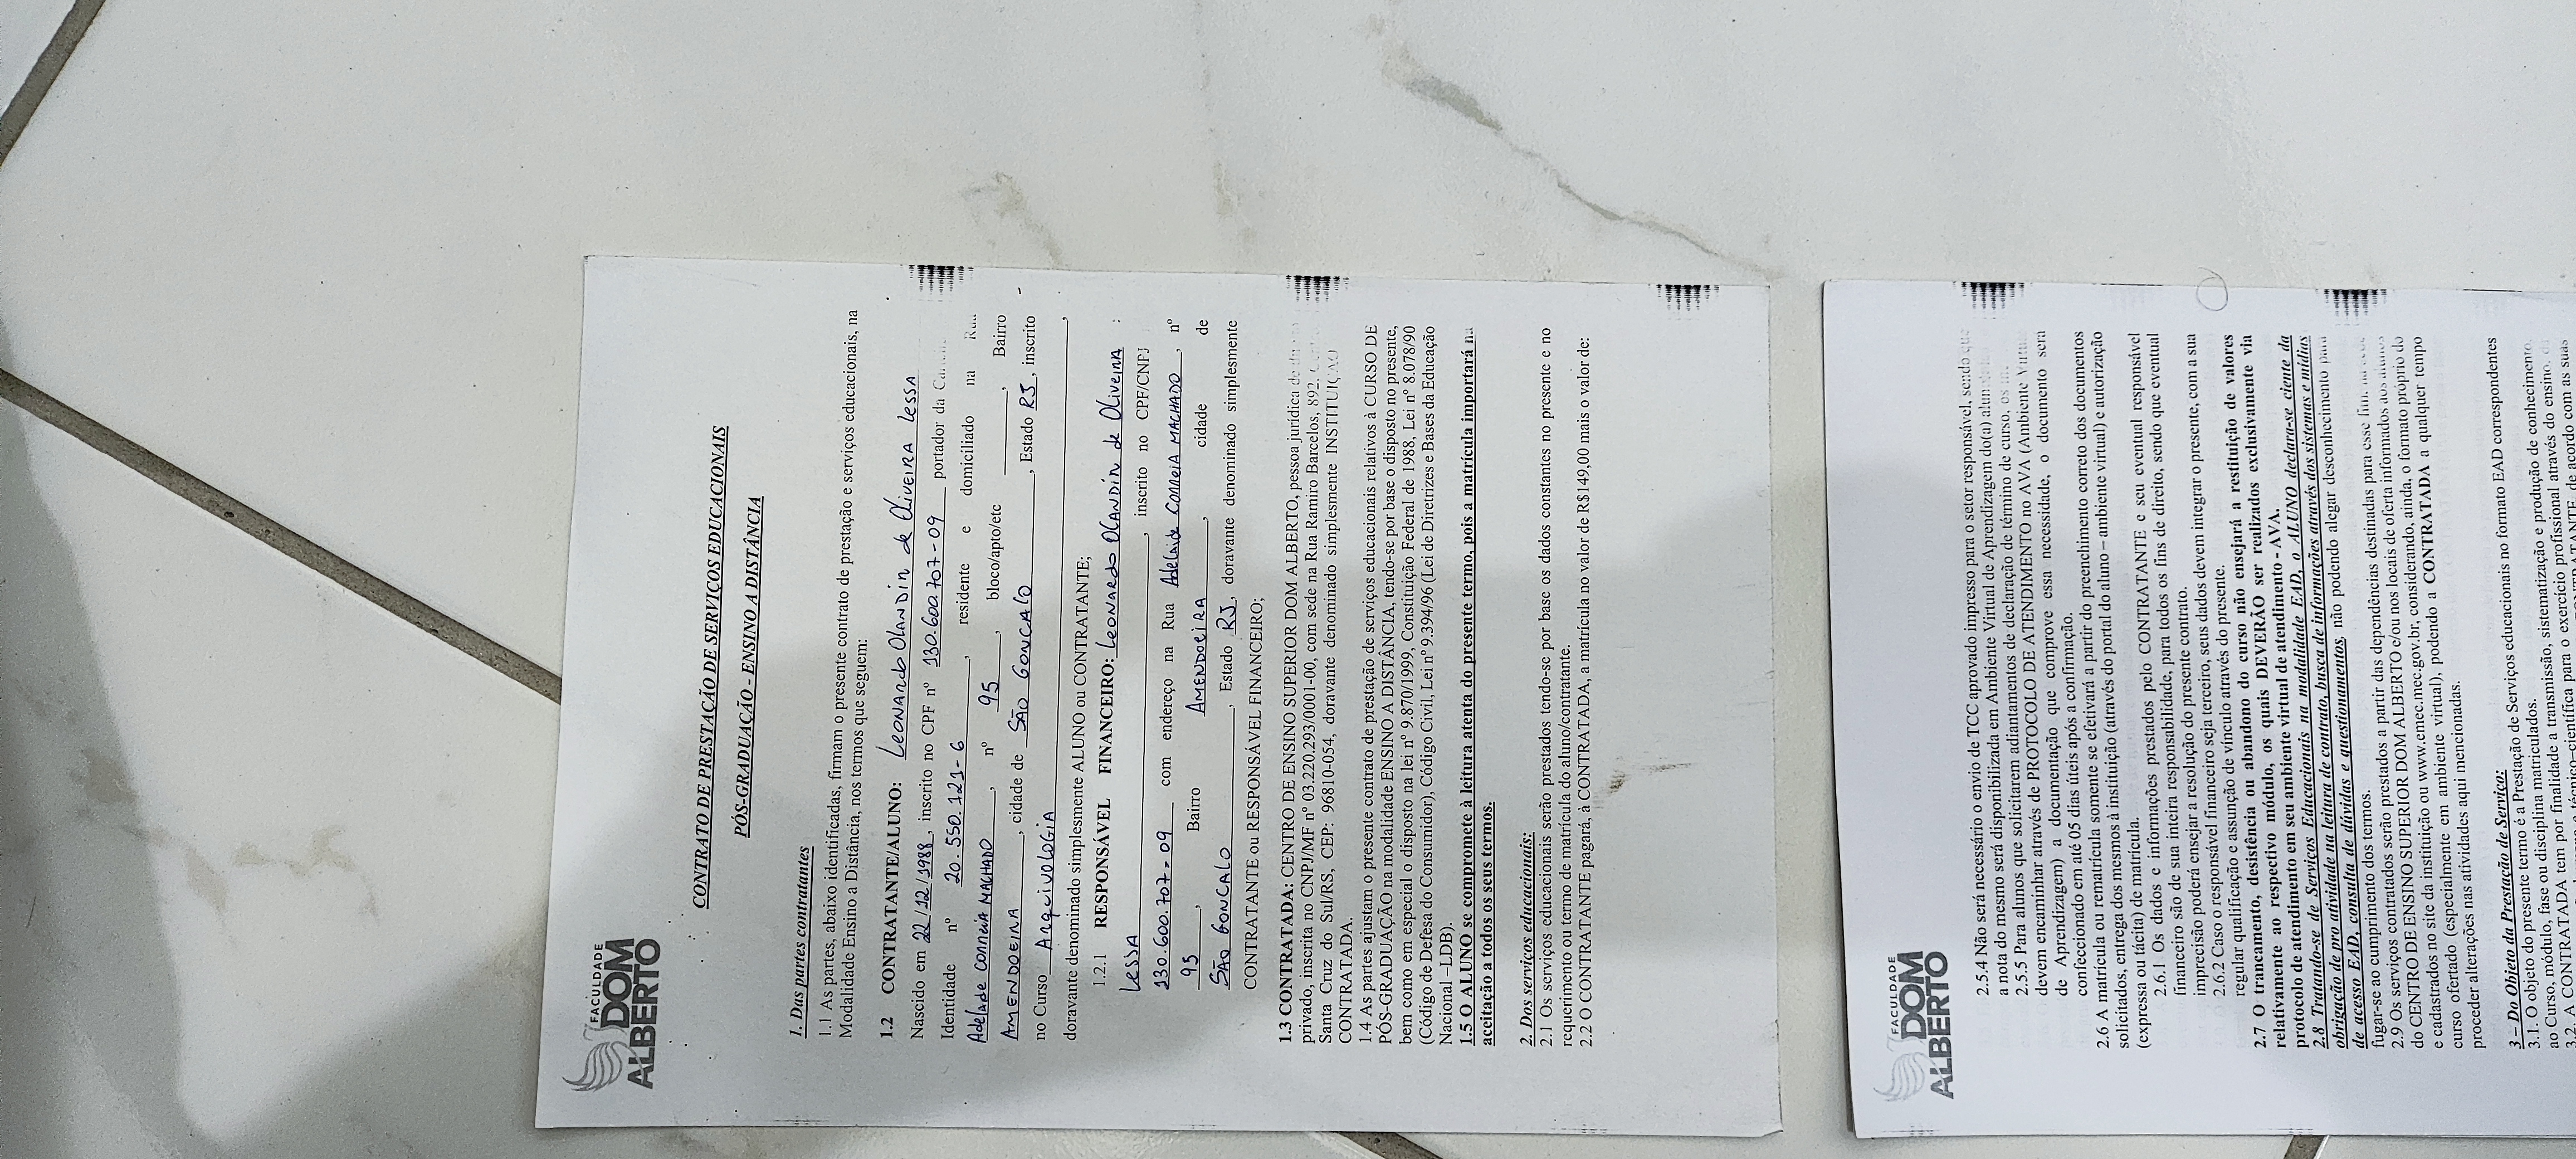 FACULDADE
DOM
ALBERTO
CONTRATO DE PRESTAÇÃO DE SERVIÇOS EDUCACIONAIS
PÓS-GRADUAÇÃO - ENSINO A DISTÂNCIA
1. Das partes contratantes
1.1 As partes, abaixo identificadas, firmam o presente contrato de prestação e serviços educacionais, na
Modalidade Ensino a Distância, nos termos que seguem:
1.2 CONTRATANTE/ALUNO: Leonardo Olandin de Oliveira Lessa
Nascido em 22/12/1988, inscrito no CPF nº 130.600.707-09 portador da
Identidade nº 20.550.121-6, residente e domiciliado na
Adelaide Correia Machado, nº 95, bloco/apto/etc , Bairro
Amendoeira, cidade de São Goncalo, Estado RJ, inscrito
no Curso Arquivologia,
doravante denominado simplesmente ALUNO ou CONTRATANTE;
1.2.1 RESPONSÁVEL FINANCEIRO: Leonardo Olandin de Oliveira :
Lessa, inscrito no CPF/CNPJ
130.600.707-09 com endereço na Rua Adelaide Correia Machado, nº
95, Bairro Amendoeira, cidade de
São Goncalo, Estado RJ, doravante denominado simplesmente
CONTRATANTE ou RESPONSÁVEL FINANCEIRO;
1.3 CONTRATADA: CENTRO DE ENSINO SUPERIOR DOM ALBERTO, pessoa jurídica de
privado, inscrita no CNPJ/MF nº 03.220.293/0001-00, com sede na Rua Ramiro Barcelos, 892,
Santa Cruz do Sul/RS, CEP: 96810-054, doravante denominado simplesmente INSTITUIÇÃO
CONTRATADA.
1.4 As partes ajustam o presente contrato de prestação de serviços educacionais relativos à CURSO DE
PÓS-GRADUAÇÃO na modalidade ENSINO A DISTÂNCIA, tendo-se por base o disposto no presente,
bem como em especial o disposto na lei nº 9.870/1999, Constituição Federal de 1988, Lei nº 8.078/90
(Código de Defesa do Consumidor), Código Civil, Lei nº 9.394/96 (Lei de Diretrizes e Bases da Educação
Nacional –LDB).
1.5 O ALUNO se compromete à leitura atenta do presente termo, pois a matrícula importará na
aceitação a todos os seus termos.
2. Dos serviços educacionais:
2.1 Os serviços educacionais serão prestados tendo-se por base os dados constantes no presente e no
requerimento ou termo de matrícula do aluno/contratante.
2.2 O CONTRATANTE pagará, à CONTRATADA, a matrícula no valor de R$149,00 mais o valor de:
FACULDADE
DOM
ALBERTO
2.5.4 Não será necessário o envio de TCC aprovado impresso para o setor responsável, sendo que
a nota do mesmo será disponibilizada em Ambiente Virtual de Aprendizagem do(a)
2.5.5 Para alunos que solicitarem adiantamentos de declaração de término de curso,
devem encaminhar através de PROTOCOLO DE ATENDIMENTO no AVA (Ambiente Virtual
de Aprendizagem) a documentação que comprove essa necessidade, o documento será
confeccionado em até 05 dias úteis após a confirmação.
2.6 A matrícula ou rematrícula somente se efetivará a partir do preenchimento correto dos documentos
solicitados, entrega dos mesmos à instituição (através do portal do aluno – ambiente virtual) e autorização
(expressa ou tácita) de matrícula.
2.6.1 Os dados e informações prestados pelo CONTRATANTE e seu eventual responsável
financeiro são de sua inteira responsabilidade, para todos os fins de direito, sendo que eventual
imprecisão poderá ensejar a resolução do presente contrato.
2.6.2 Caso o responsável financeiro seja terceiro, seus dados devem integrar o presente, com a sua
regular qualificação e assunção de vínculo através do presente.
2.7 O trancamento, desistência ou abandono do curso não ensejará a restituição de valores
relativamente ao respectivo módulo, os quais DEVERÃO ser realizados exclusivamente via
protocolo de atendimento em seu ambiente virtual de atendimento - AVA.
2.8 Tratando-se de Serviços Educacionais na modalidade EAD, o ALUNO declara-se ciente da
obrigação de pro atividade na leitura de contrato, busca de informações através dos sistemas e mídias
de acesso EAD, consulta de dúvidas e questionamentos, não podendo alegar desconhecimento para
fugar-se ao cumprimento dos termos.
2.9 Os serviços contratados serão prestados a partir das dependências destinadas para esse fim,
do CENTRO DE ENSINO SUPERIOR DOM ALBERTO e/ou nos locais de oferta informados aos alunos
e cadastrados no site da instituição ou www.emec.mec.gov.br, considerando, ainda, o formato próprio do
curso ofertado (especialmente em ambiente virtual), podendo a CONTRATADA a qualquer tempo
proceder alterações nas atividades aqui mencionadas.
3 – Do Objeto da Prestação de Serviço:
3.1. O objeto do presente termo é a Prestação de Serviços educacionais no formato EAD correspondentes
ao Curso, módulo, fase ou disciplina matriculados.
3.2. A CONTRATADA tem por finalidade a transmissão, sistematização e produção de conhecimento,
técnico–científica para o exercício profissional através do ensino,
de acordo com as suas